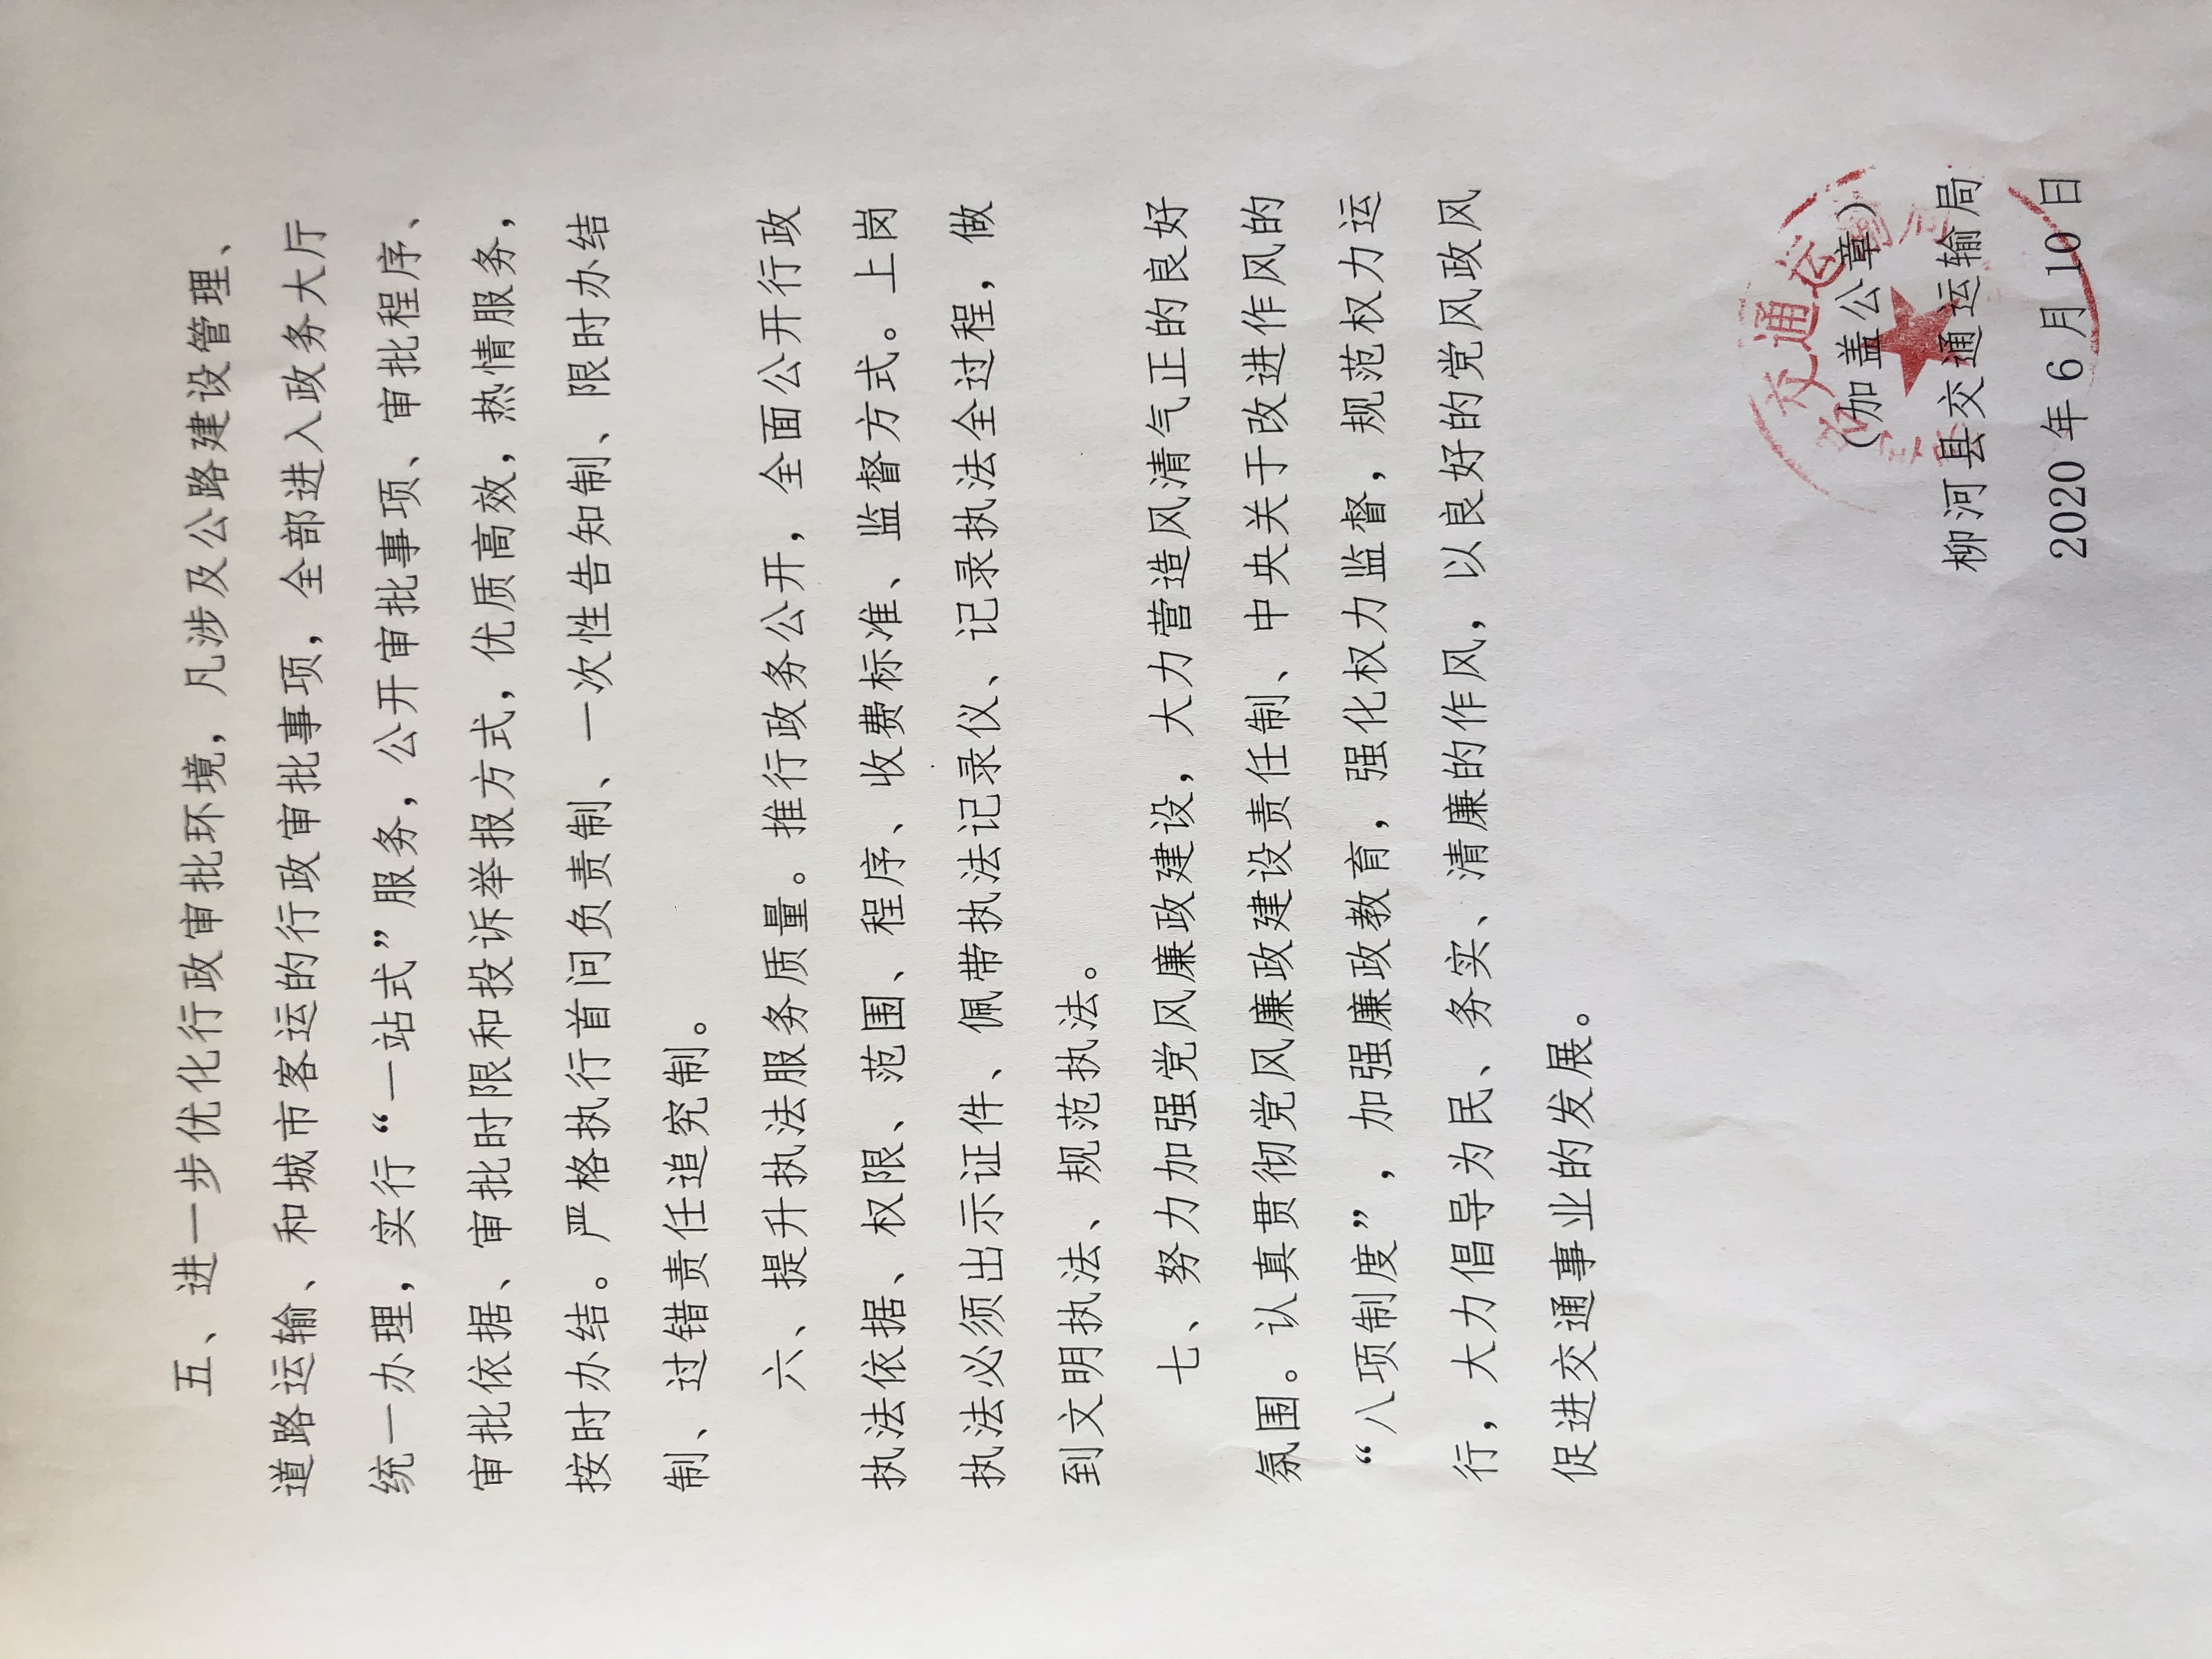 五、进一步优化行政审批环境，凡涉及公路建设管理、
道路运输、和城市客运的行政审批事项，全部进入政务大厅
统一办理，实行“一站式”服务，公开审批事项、审批程序、
审批依据、审批时限和投诉举报方式，优质高效，热情服务，
按时办结。严格执行首问负责制、一次性告知制、限时办结
制、过错责任追究制。
六、提升执法服务质量。推行政务公开，全面公开行政
执法依据、权限、范围、程序、收费标准、监督方式。上岗
执法必须出示证件、佩带执法记录仪、记录执法全过程，做
到文明执法、规范执法。
七、努力加强党风廉政建设，大力营造风清气正的良好
氛围。认真贯彻党风廉政建设责任制、中央关于改进作风的
“八项制度”，加强廉政教育，强化权力监督，规范权力运
行，大力倡导为民、务实、清廉的作风，以良好的党风政风
促进交通事业的发展。
交通运
（加盖公章）
柳河县交通运输局
2020年6月10日